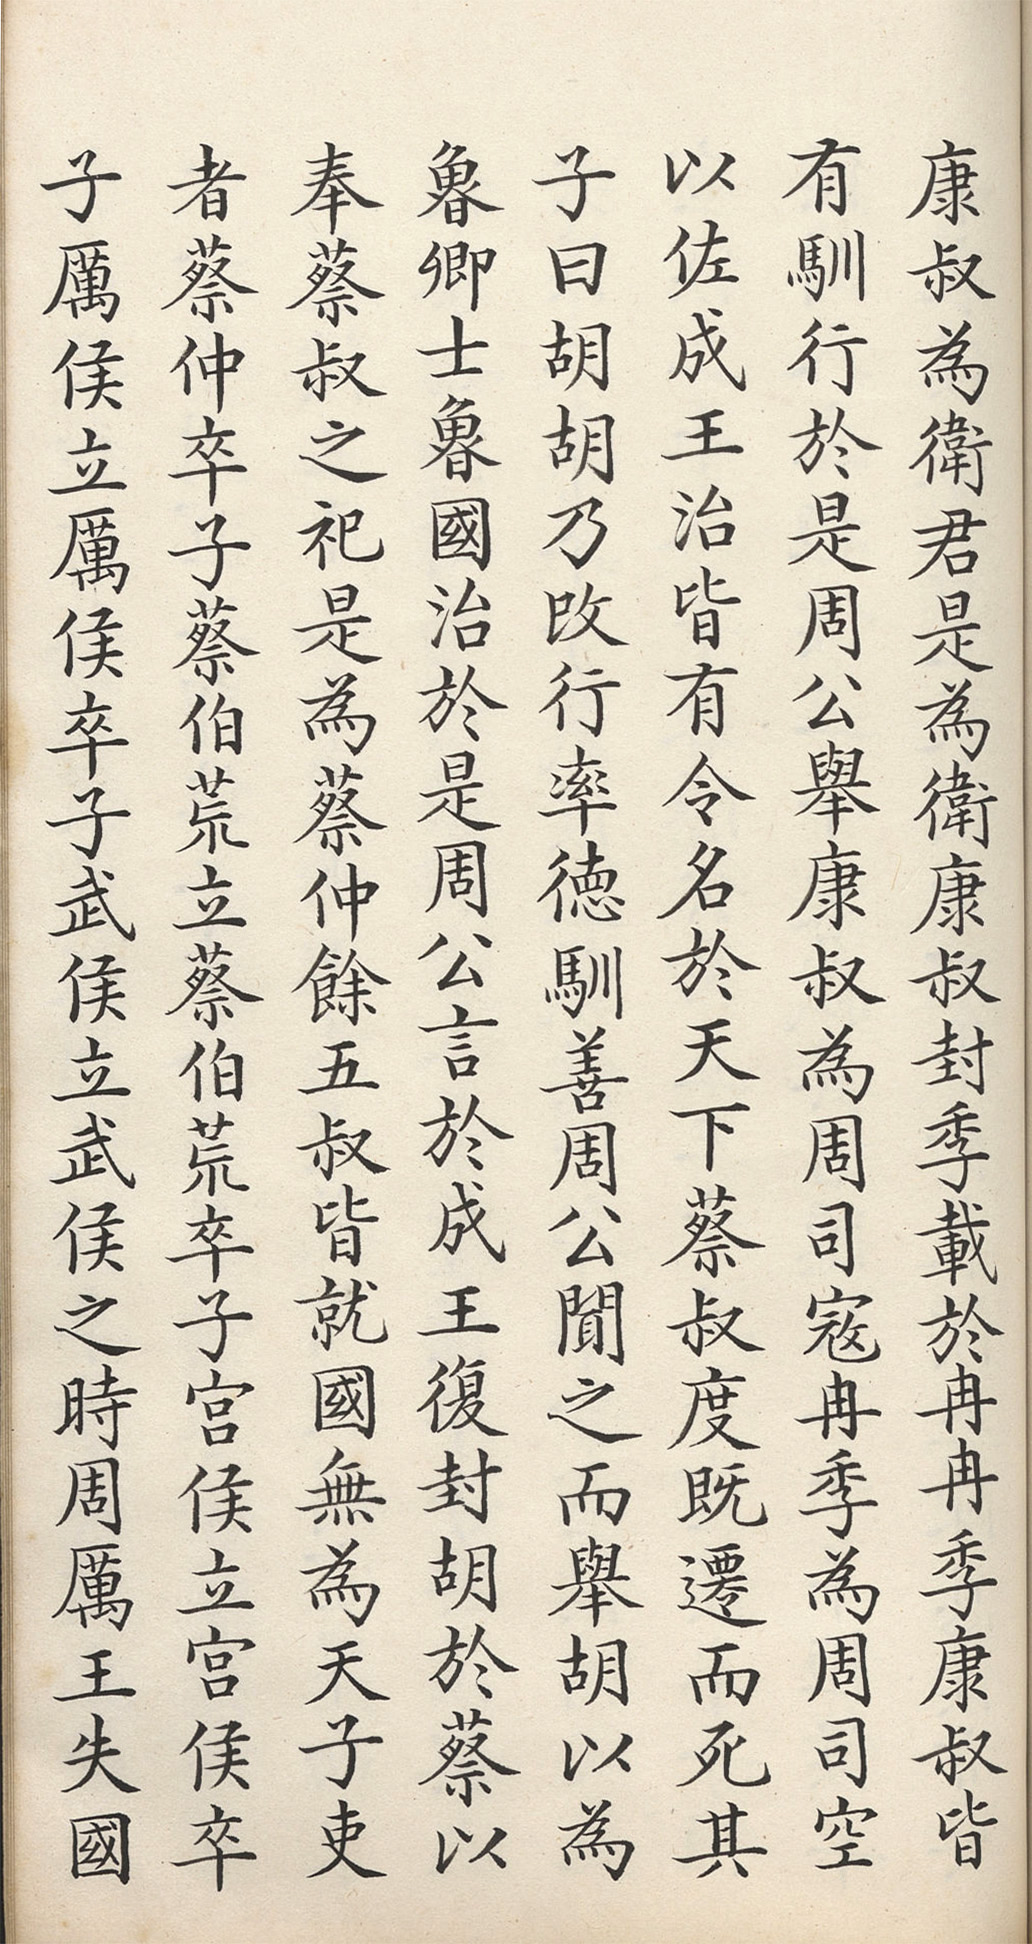 康叔為衛君是為衛康叔封季載於冉冉季康叔皆
有馴行於是周公舉康叔為周司寇冉季為周司空
以佐成王治皆有令名於天下蔡叔度既遷而死其
子曰胡胡乃改行率德馴善周公聞之而舉胡以為
魯卿士魯國治於是周公言於成王復封胡於蔡以
奉蔡叔之祀是為蔡仲餘五叔皆就國無為天子吏
者蔡仲卒子蔡伯荒立蔡伯荒卒子宮侯立宮侯卒
子厲侯立厲侯卒子武侯立武侯之時周厲王失國